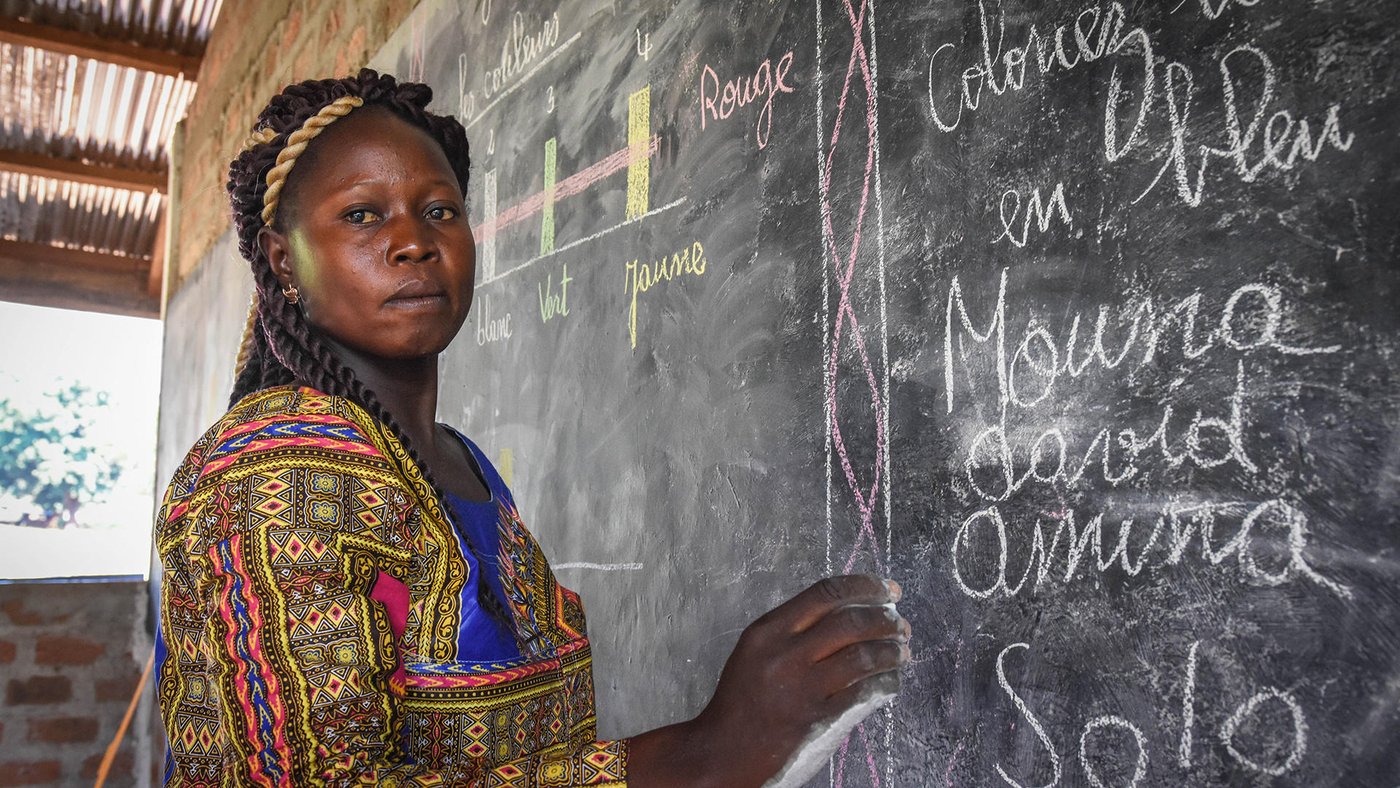 les couleurs
2 3 4
Rouge
blanc Vert Jaune
Coloriez
en
bleu
Mouna
david
amina
Solo